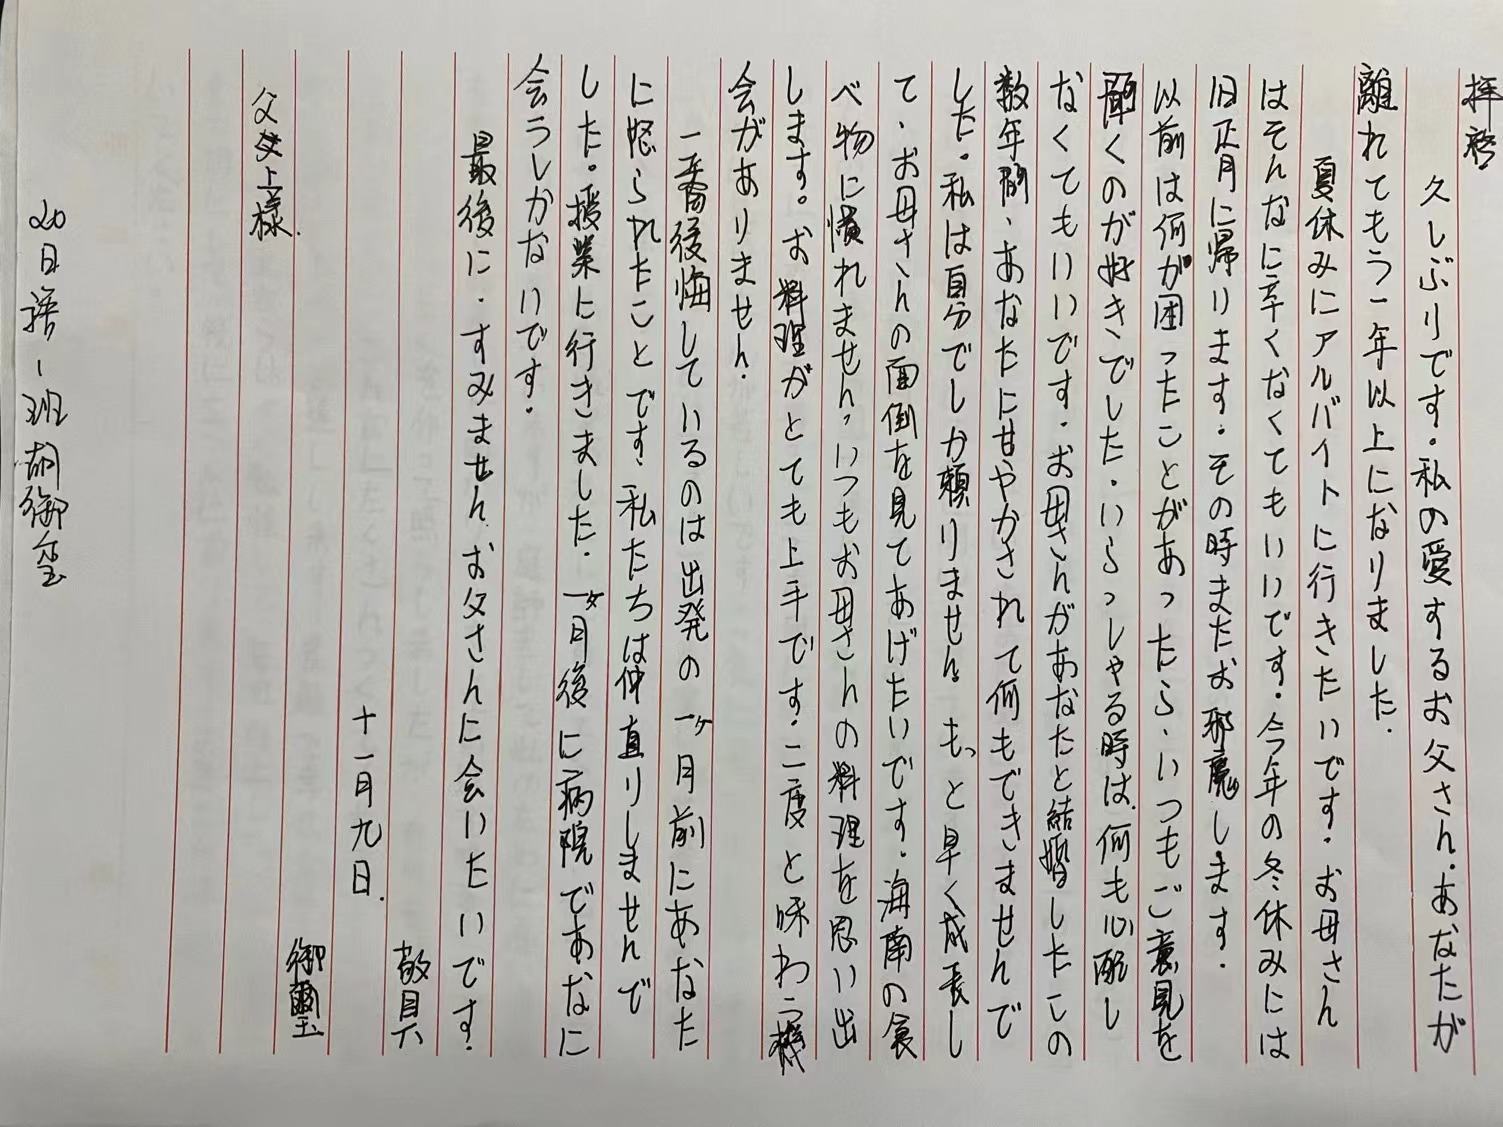 拝啓.
久しぶりです.私の愛するお父さん.あなたが
離れてもう一年以上になりました.
夏休みにアルバイトに行きたいです.お母さん
はそんなに辛くなくてもいいです.今年の冬休みには
旧正月に帰ります.その時またお邪魔します.
以前は何が困ったことがあったら、いつもご意見を
聞くのが好きでした.いらっしゃる時は.何も心配し
なくてもいいです.お母さんがあなたと結婚したこの
数年間、あなたに甘やかされて何もできませんで
した.私は自分でしか頼りません.もっと早く成長し
て、お母さんの面倒を見てあげたいです.海南の食
べ物に慣れません,いつもお母さんの料理を思い出
します。お料理がとても上手です.二度と味わう機
会がありません.
一番後悔しているのは出発の一ヶ月前にあなた
に怒られたことです.私たちは仲直りしませんで
した。授業に行きました.一ヶ月後に病院であなに
会うしかないです.
最後に.すみません.お父さんに会いたいです.
敬具
十一月九日.
御璽
父上様.
20日語1班胡御玺